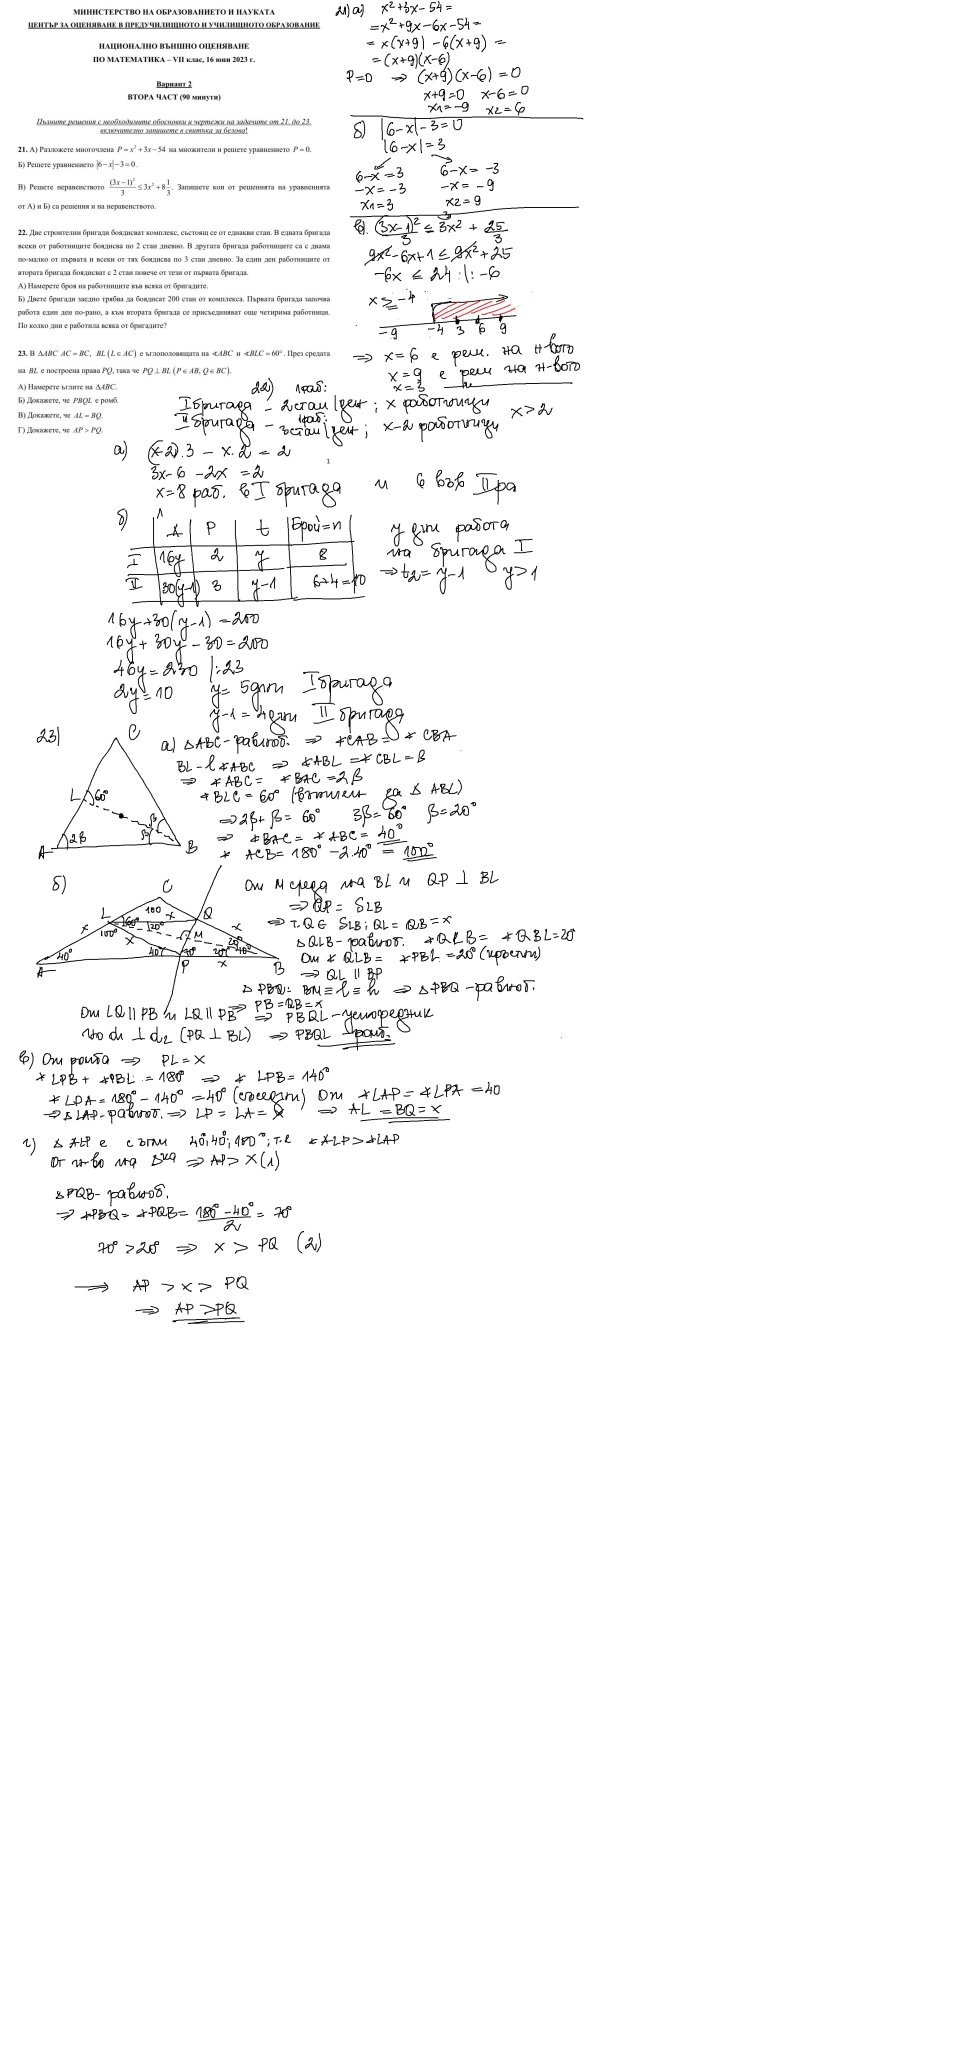 МИНИСТЕРСТВО НА ОБРАЗОВАНИЕТО И НАУКАТА
ЦЕНТЪР ЗА ОЦЕНЯВАНЕ В ПРЕДУЧИЛИЩНОТО И УЧИЛИЩНОТО ОБРАЗОВАНИЕ
НАЦИОНАЛНО ВЪНШНО ОЦЕНЯВАНЕ
ПО МАТЕМАТИКА – VII клас, 16 юни 2023 г.
Вариант 2
ВТОРА ЧАСТ (90 минути)
Пълните решения с необходимите обосновки и чертежи на задачите от 21. до 23.
включително запишете в свитъка за белова!
21. А) Разложете многочлена P = x² + 3x − 54 на множители и решете уравнението P = 0.
Б) Решете уравнението |6 − x| − 3 = 0.
В) Решете неравенството (3x−1)²/3 ≤ 3x² + 8 1/3. Запишете кои от решенията на уравненията
от А) и Б) са решения и на неравенството.
22. Две строителни бригади боядисват комплекс, състоящ се от еднакви стаи. В едната бригада
всеки от работниците боядисва по 2 стаи дневно. В другата бригада работниците са с двама
по-малко от първата и всеки от тях боядисва по 3 стаи дневно. За един ден работниците от
втората бригада боядисват с 2 стаи повече от тези от първата бригада.
А) Намерете броя на работниците във всяка от бригадите.
Б) Двете бригади заедно трябва да боядисат 200 стаи от комплекса. Първата бригада започва
работа един ден по-рано, а към втората бригада се присъединяват още четирима работници.
По колко дни е работила всяка от бригадите?
23. В △ABC AC = BC, BL (L ∈ AC) е ъглополовящата на ∢ABC и ∢BLC = 60°. През средата
на BL е построена права PQ, така че PQ ⊥ BL (P ∈ AB, Q ∈ BC).
А) Намерете ъглите на △ABC.
Б) Докажете, че PBQL е ромб.
В) Докажете, че AL = BQ.
Г) Докажете, че AP > PQ.
1
21) а) x²+3x−54=
=x²+9x−6x−54=
= x(x+9) −6(x+9) =
= (x+9)(x−6)
P=0 ⇒ (x+9)(x−6) =0
x+9=0 x−6=0
x1=−9 x2=6
б) |6−x|−3=0
|6−x|=3
6−x=3 6−x= −3
−x=−3 −x= −9
x1=3 x2=9
в) (3x−1)²/3 ≤ 3x² + 25/3
3
9x²−6x+1 ≤ 9x²+25
−6x ≤ 24 |: −6
x ≥ −4
−9 −4 3 6 9
⇒ x=6 е реш. на н-вото
x=9 е реш на н-вото
x=3
22) 1раб:
I бригада − 2стаи/ден ; x работници
1раб:
II бригада − 3стаи/ден ; x−2 работници x>2
а) (x−2).3 − x.2 = 2
3x−6 −2x =2
x=8 раб. в I бригада и 6 във II ра
б)
A P t Брой=n
I 16y 2 y 8
II 30(y−1) 3 y−1 6+4=10
y дни работа
на бригада I
⇒ t2= y−1 y>1
16y+30(y−1) =200
16y+30y−30=200
46y=230 |:23
2y=10 y= 5дни I бригада
y−1 = 4дни II бригада
23)
C
L 60°
A 2β β β B
а) △ABC−равноб. ⇒ ∢CAB= ∢CBA
BL−l ∢ABC ⇒ ∢ABL=∢CBL=β
⇒ ∢ABC= ∢BAC=2β
∢BLC=60° (външен за △ ABL)
⇒2β+β= 60° 3β=60° β=20°
⇒ ∢BAC= ∢ABC= 40°
∢ ACB= 180° −2.40° = 100°
б)
C
L 100 x Q
x 60° 20° x
100° x M 20°
A 40° 40° 70° 20° 40° B
P x
От M среда на BL и QP ⊥ BL
⇒ QP = SLB
⇒ т.Q ∈ SLB; QL= QB=x
△QLB−равноб. ∢QLB= ∢QBL=20°
От ∢QLB= ∢PBL=20° (кръстни)
⇒ QL ∥ BP
△ PBQ: BM≡l≡h ⇒ △PBQ−равноб.
⇒ PB=QB=x
От LQ∥PB и LQ∥PB ⇒ PBQL−успоредник
но d1 ⊥ d2 (PQ⊥BL) ⇒ PBQL −ромб.
в) От ромба ⇒ PL=x
∢LPB+ ∢PBL =180° ⇒ ∢ LPB=140°
∢LPA=180°−140° =40° (съседни) От ∢LAP=∢LPA =40
⇒△LAP−равноб.⇒ LP=LA=x ⇒ AL =BQ=x
г) △ ALP е с ъгли 40°;40°;100°; т.е ∢ALP>∢LAP
От н-во на △ка ⇒ AP> x (1)
△PQB−равноб.
⇒ ∢PBQ= ∢PQB= 180°−40°/2 = 70°
70° >20° ⇒ x > PQ (2)
⇒ AP >x> PQ
⇒ AP >PQ